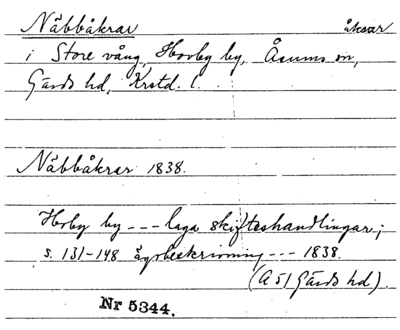 Näbbåkrar åkrar
i Store vång, Horby by, Åsums sn,
Gärds hd, Krstd. l.
Näbbåkrar 1838.
Horby by --- laga skifteshandlingar;
s. 131-148 ägobeskrivning --- 1838.
(A 51 Gärds hd).
Nr 5344.